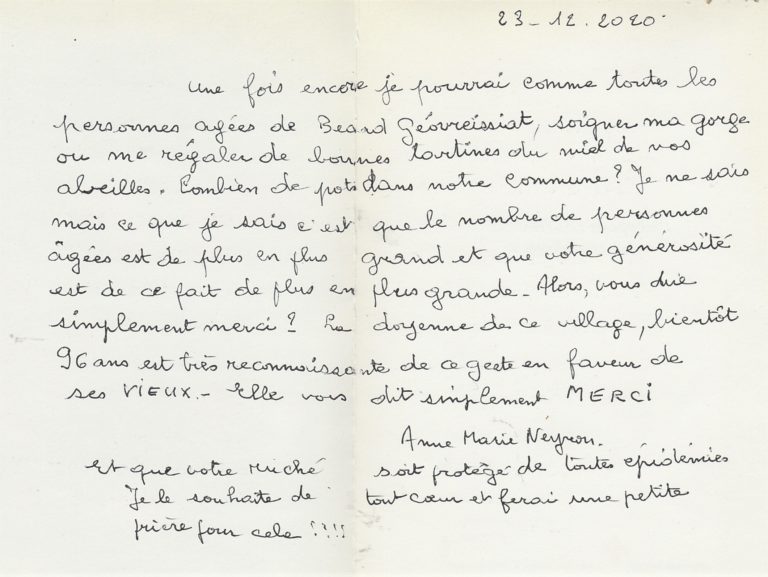 23-12.2020.
Une fois encore je pourrai comme toutes les
personnes agées de Beard Géovreissiat, soigner ma gorge
ou me régaler de bonnes tartines du miel de vos
abeilles. Combien de pots dans notre commune ? Je ne sais
mais ce que je sais c'est que le nombre de personnes
âgées est de plus en plus grand et que votre générosité
est de ce fait de plus en plus grande - Alors, vous dire
simplement merci ? La doyenne de ce village, bientôt
96 ans est très reconnaissante de ce geste en faveur de
ses VIEUX. - Elle vous dit simplement MERCI
Anne Marie Neyron.
Et que votre ruché soit protégé de toutes épidémies
Je le souhaite de tout cœur et ferai une petite
prière pour cela !!!!